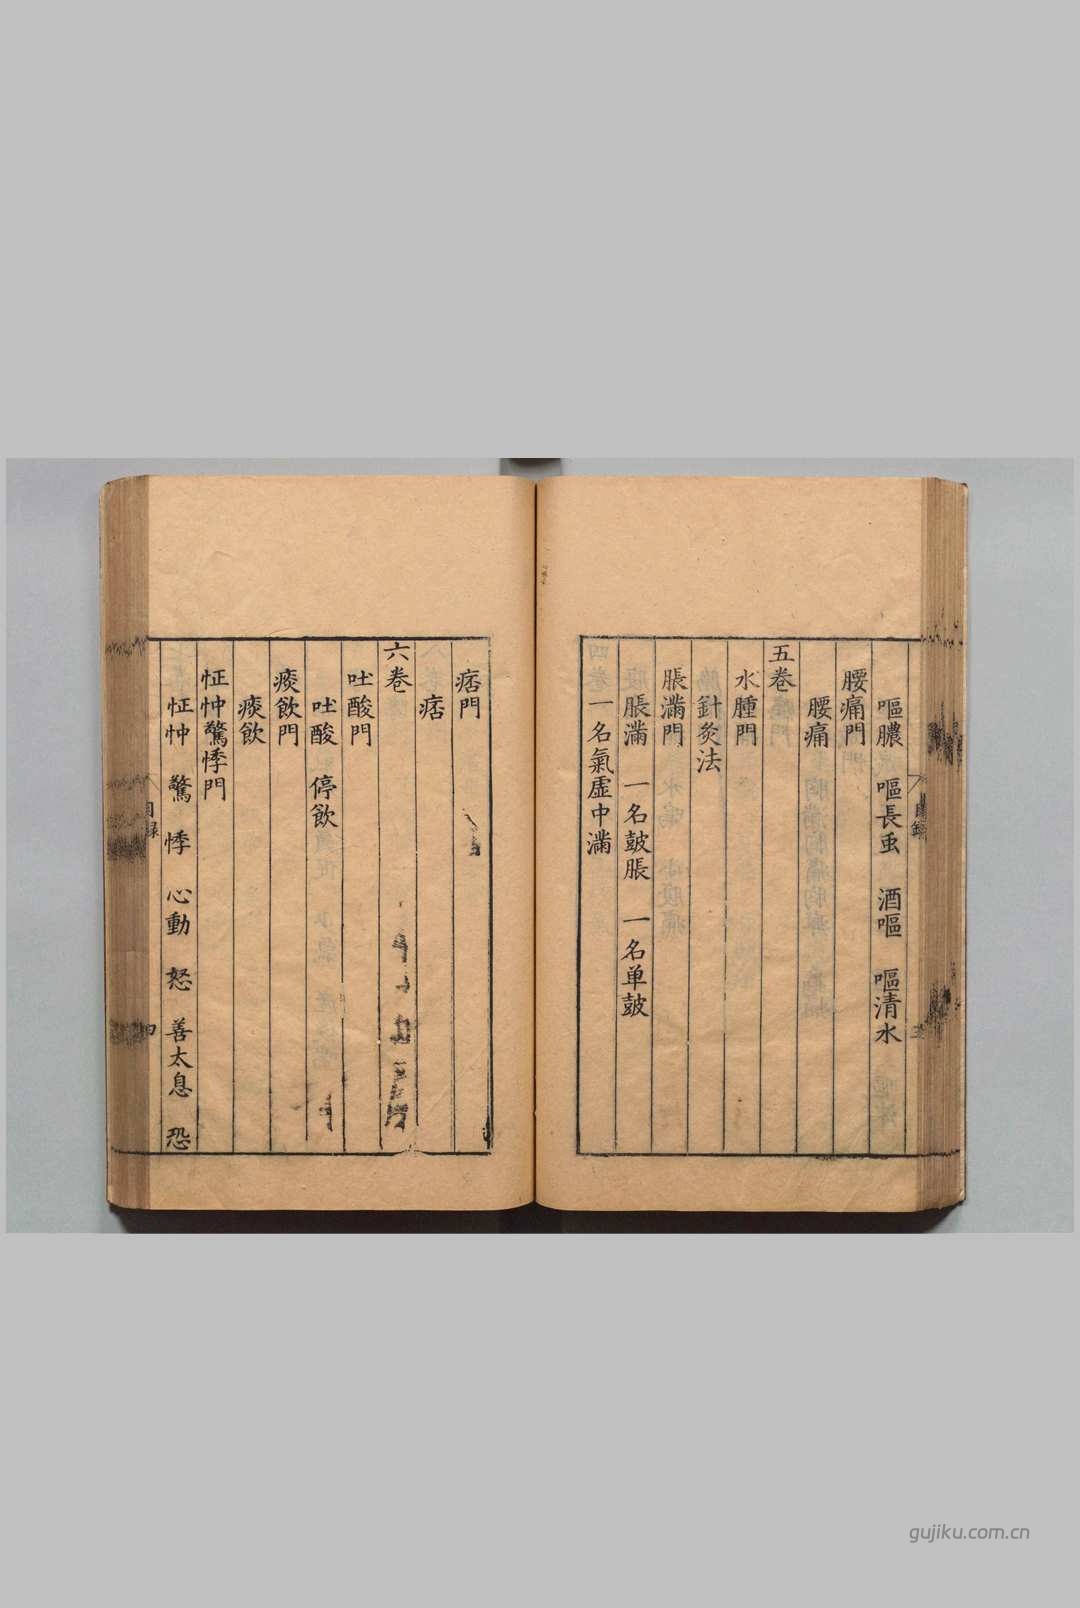 嘔膿　嘔長虫　酒嘔　嘔清水
腰痛門
腰痛
五卷
水腫門
針灸法
脹滿門
脹滿　一名皷脹　一名单皷
一名氣虛中滿
痞門
痞
六卷
吐酸門
吐酸　停飲
痰飲門
痰飲
怔忡驚悸門
怔忡　驚　悸　心動　怒　善太息　恐
目録
四
gujiku.com.cn